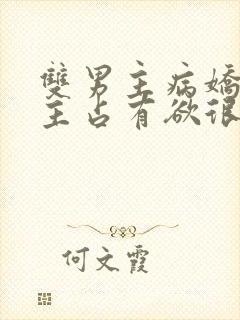 雙男主病嬌
主占有欲很
何文霞